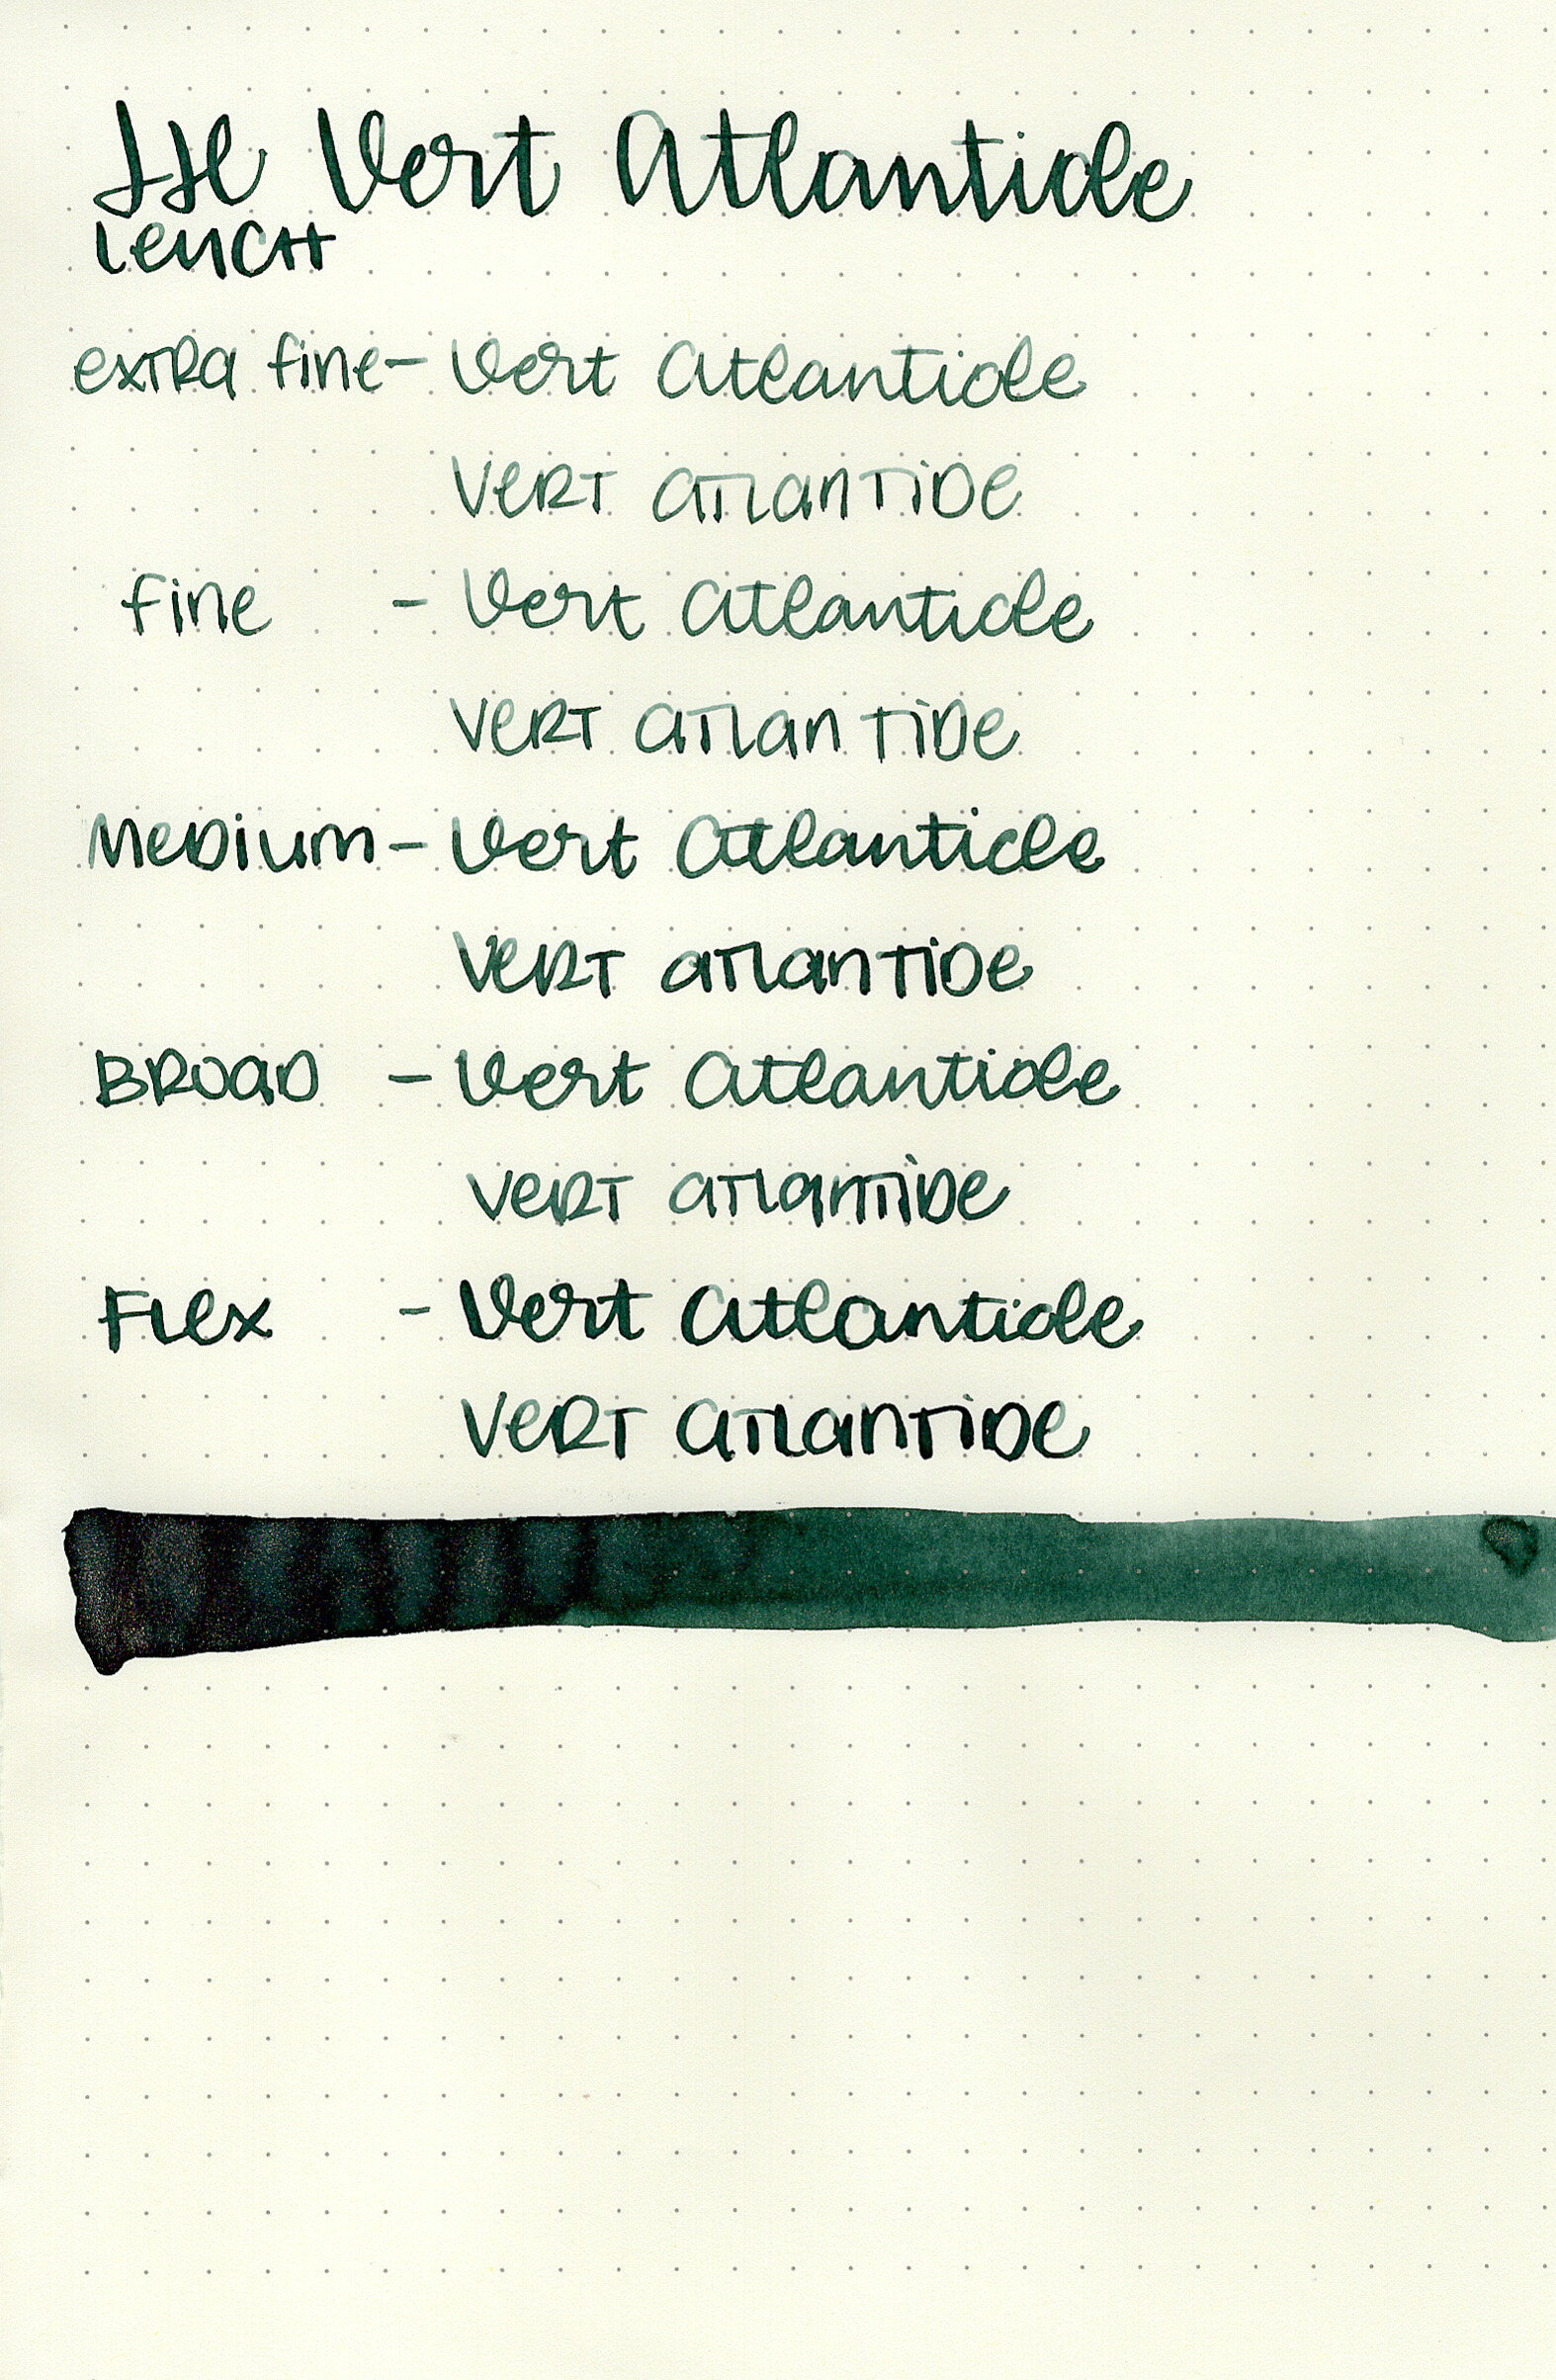 JH Vert Atlantide
Leucht
extra fine - Vert Atlantide
Vert Atlantide
fine - Vert Atlantide
Vert Atlantide
Medium - Vert Atlantide
Vert Atlantide
Broad - Vert Atlantide
Vert Atlantide
Flex - Vert Atlantide
Vert Atlantide